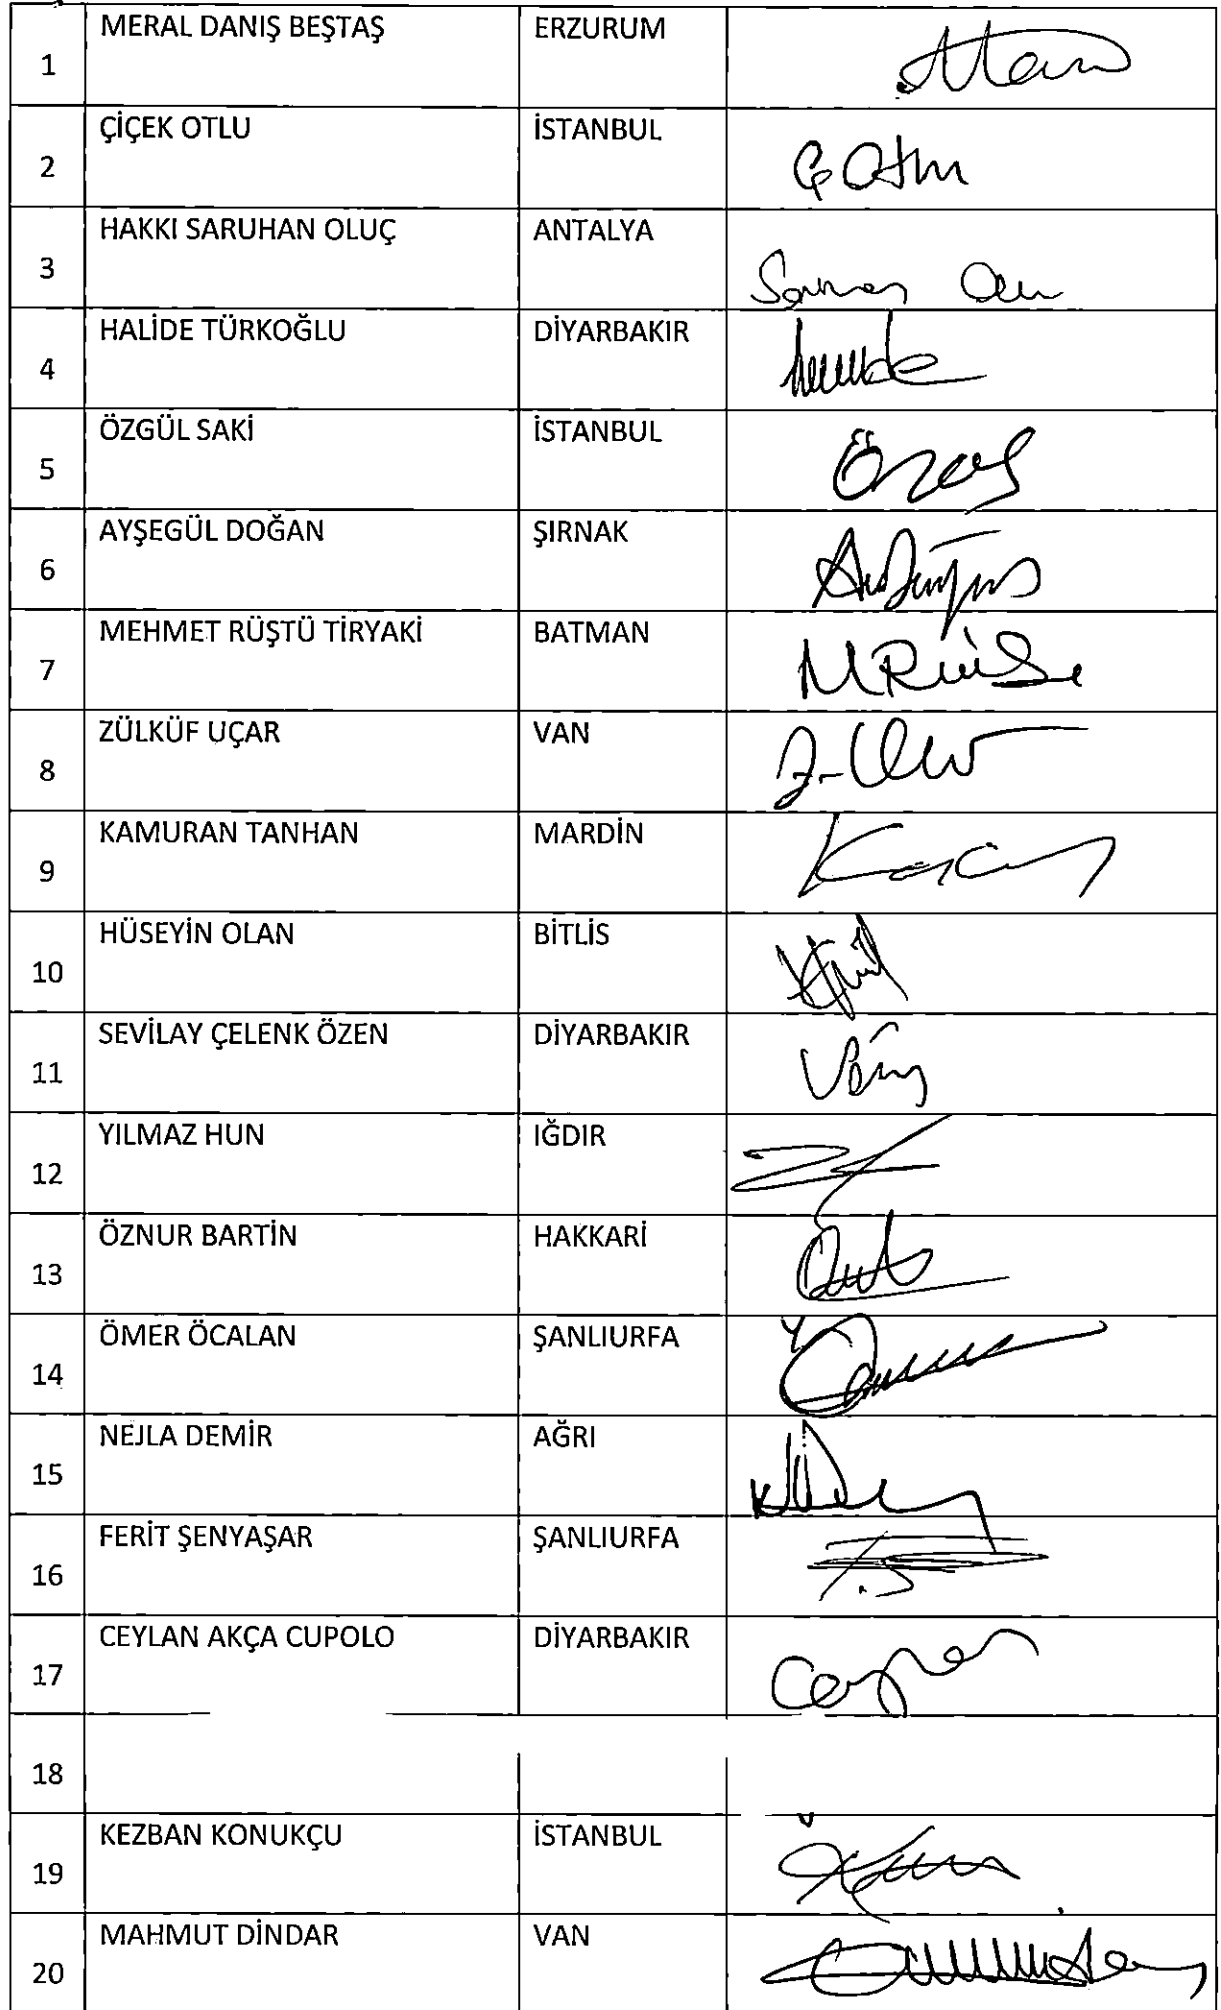 1 MERAL DANIŞ BEŞTAŞ ERZURUM
2 ÇİÇEK OTLU İSTANBUL
3 HAKKI SARUHAN OLUÇ ANTALYA
4 HALİDE TÜRKOĞLU DİYARBAKIR
5 ÖZGÜL SAKİ İSTANBUL
6 AYŞEGÜL DOĞAN ŞIRNAK
7 MEHMET RÜŞTÜ TİRYAKİ BATMAN
8 ZÜLKÜF UÇAR VAN
9 KAMURAN TANHAN MARDİN
10 HÜSEYİN OLAN BİTLİS
11 SEVİLAY ÇELENK ÖZEN DİYARBAKIR
12 YILMAZ HUN IĞDIR
13 ÖZNUR BARTİN HAKKARİ
14 ÖMER ÖCALAN ŞANLIURFA
15 NEJLA DEMİR AĞRI
16 FERİT ŞENYAŞAR ŞANLIURFA
17 CEYLAN AKÇA CUPOLO DİYARBAKIR
18
19 KEZBAN KONUKÇU İSTANBUL
20 MAHMUT DİNDAR VAN